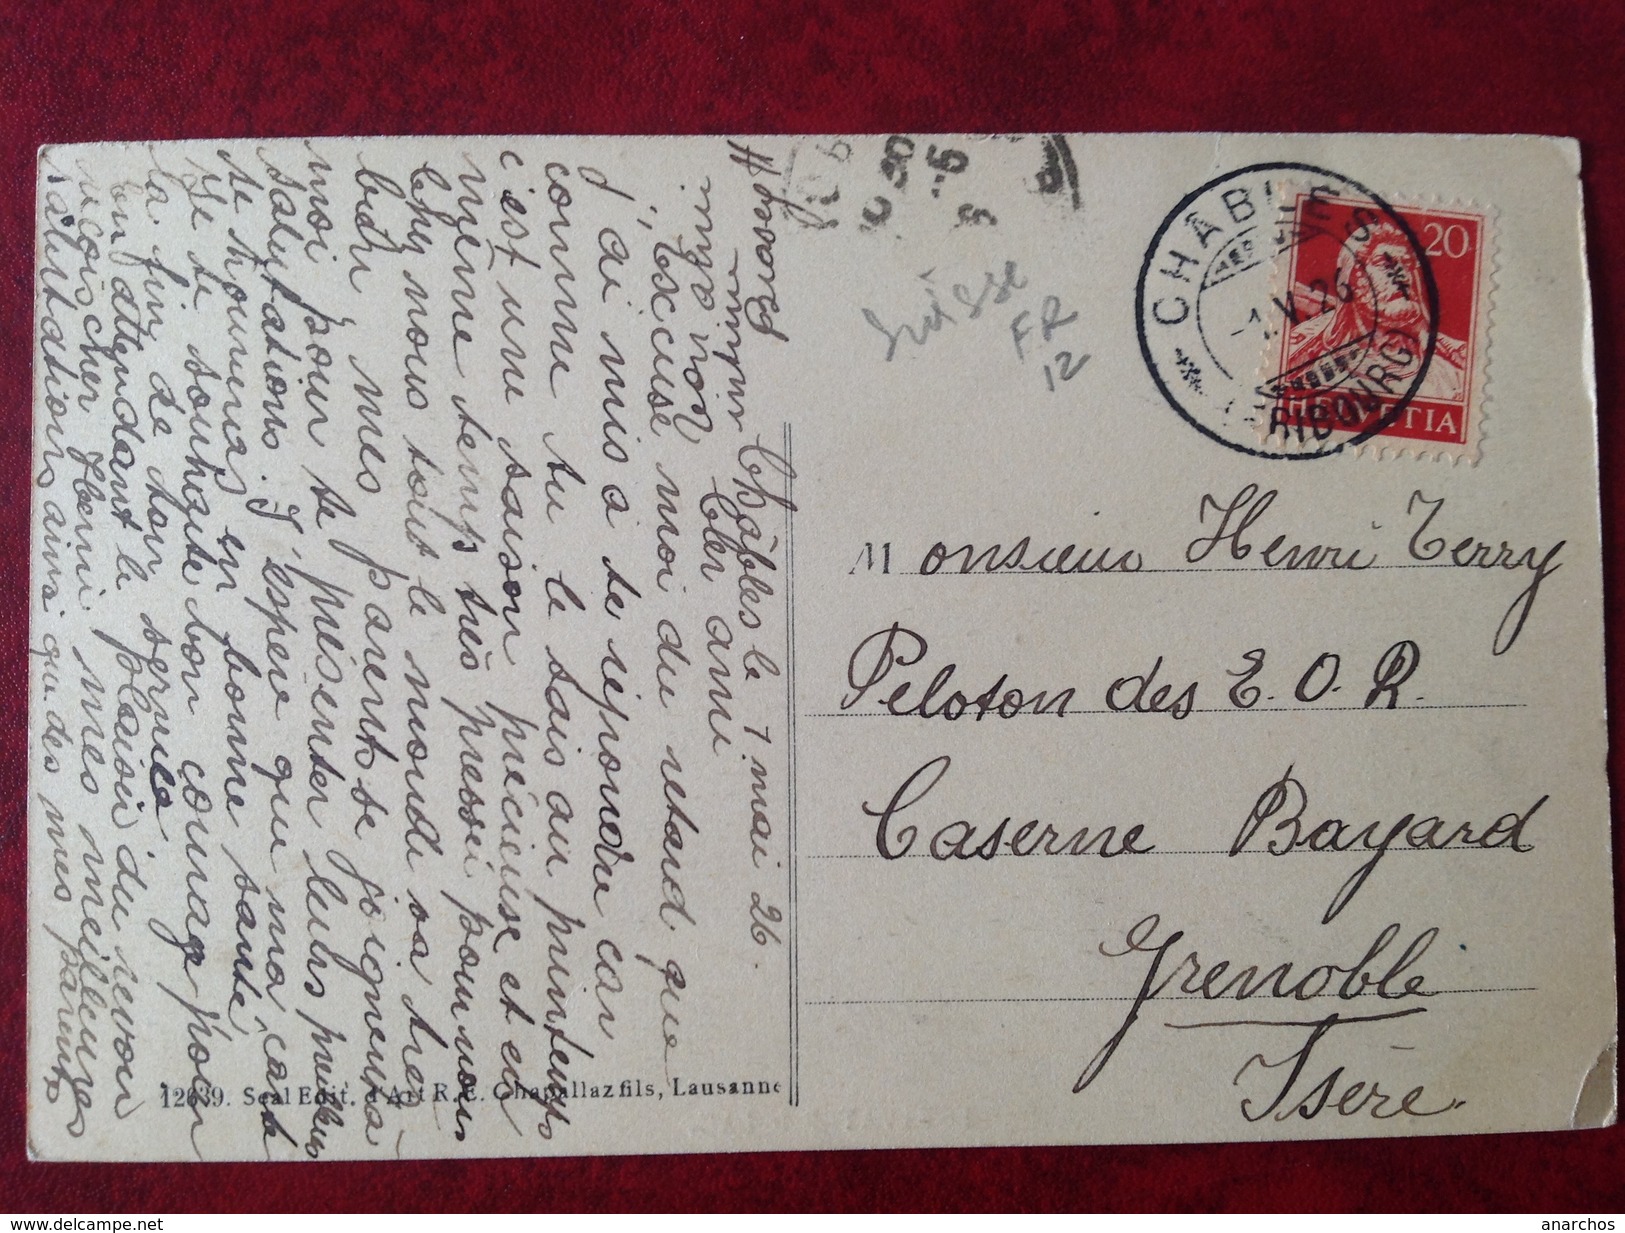 Châbles le 1 mai 26.
Cher ami
Excuse moi du retard que
j'ai mis a te reponedre car
comme tu le sais au printemps
c'est une saison précieuse et en
même temps très pressé pour nous
chez nous tout le monde va très
bien mes parents se joigneuts
moi pour te présenter leurs meilleurs
salutations. J'espere que ma carte
te trouveras en bonne santé,
Je te souhaite bon courage pour
la fin de ton service
En attendant le plaisir du revoir
reçois cher Henri mes meilleures
salutations ainsi que des mes parents
12639. Seal Edit. d'Art R. E. Chapallaz fils, Lausanne
Suisse
FR
12
CHABLES
-1.V.26
(FRIBOURG)
20
HELVETIA
Monsieur Henri Terry
Peloton des E.O.R.
Caserne Bayard
Grenoble
Isère.
anarchos